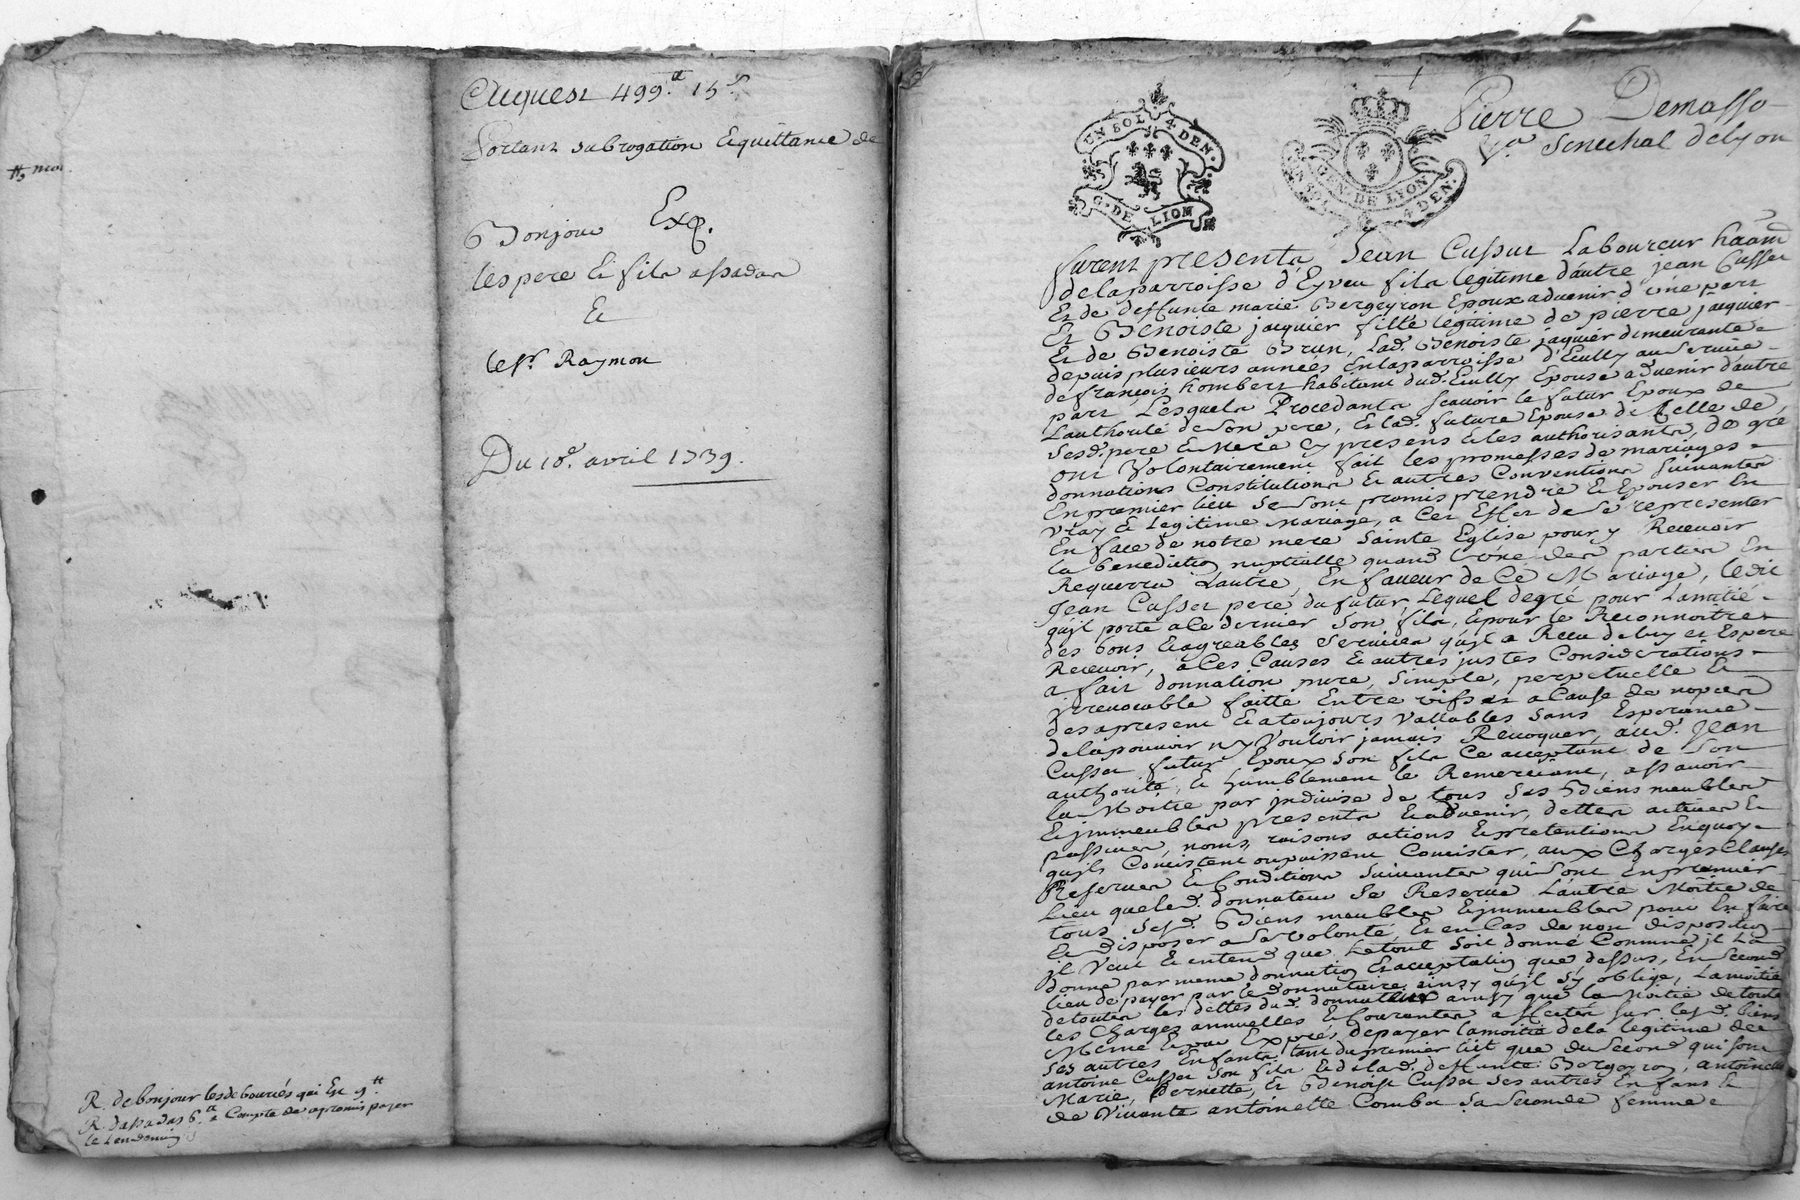 Acquest 499.tt 15s.
Portant subrogation Equittance de
tt 9 moi.
Bonjour Exp.
les pere Et fils assadas
Et
le sr. Raymon
Du 18e. avril 1739.
R. de bonjour les debources qui Est 9tt
R. d'assadas 6tt a Compte de a promis payer
le Lendemain
UN SOL 4 DEN.
G. DE LION
GEN. DE LYON
UN SOL 4 DEN.
Pierre Demasso
Senechal de Lyon
furent presents, Jean Cusset Laboureur haant
de la parroisse d'Eyveu fils legitime d'autre jean Cusset
Et de deffunte marie Bergeyron Epoux advenir d'une part
Et Benoiste jacquier fille legitime de pierre jacquier
Et de Benoiste Brun, Lad. Benoiste jacquier demeurante
depuis plusieurs années En la parroisse d'Ecully au service
de françois hombert habitant dud. Ecully Epouse advenir d'autre
part, Lesquels Procedants scavoir le futur Epoux de
L'authorité de son pere, Et lad. future Epouse de Celle de
sesd. pere Et Mere Cy presens Et les authorisants, de gré
ont Volontairement fait les promesses de mariages
donnations Constitutions Et autres Conventions suivantes
En premier lieu se sont promis prendre Et Epouser En
vray Et Legitime Mariage, a Cet Effet de se representer
En face de notre mere Sainte Eglise pour y Recevoir
la benediction nuptialle quand L'une des parties En
Requerra Lautre, En faveur de Ce Mariage, ledit
Jean Cusset pere du futur, Lequel de gré pour Lamitié
qu'jl porte a Ce dernier son fils, Et pour le Reconnoitre
des bons Et agreables services qu'jl a Receu de luy et Espere
Recevoir, a Ces Causes Et autres justes Considerations
a fait donnation pure, simple, perpetuelle Et
jrrevocable faitte Entre vifs et a Cause de nopces
des apresent Et a toujours vallables sans Esperance
de la pouvoir ny Vouloir jamais Revoquer, aud. Jean
Cusset futur Epoux son fils Ce acceptant de son
authorité, Et humblement le Remerciant, assavoir
la Moitie par jndivise de tous ses Biens meubles
Et jmmeubles presents Et advenir, dettes actives Et
passives, noms, raisons actions Et pretentions En quoy
qu'jls Consistent ou puissent Consister, aux Charges Clauses
Reserves Et Conditions suivantes qui sont En premier
Lieu que led. donnateur se Reserve Lautre Moitie de
tous sesd. Biens meubles Et jmmeubles pour En faire
Et disposer a sa volonté, Et en Cas de non disposition
jl Veut Et entend que Le tout soit donné Comme jl La
donne par meme donnation Et acceptation que dessus, En second
lieu de payer par le donnataire ainsy qu'jl s'y oblige, La moitie
de toutes les dettes dud. donnateur ainsy que la Moitie de toutes
les Charges annuelles Et Courantes a Mettre sur lesd. biens
Meme Et par Exprés, de payer la moitié de la legitime des
ses autres Enfants tant du premier Lit que du second qui sont
antoine Cusset son fils Et de lad. deffunte Bergeyron, antoinette
Marie, Pernette, Et Benoist Cusset ses autres Enfans Et
de Vivante antoinette Combet sa seconde femme